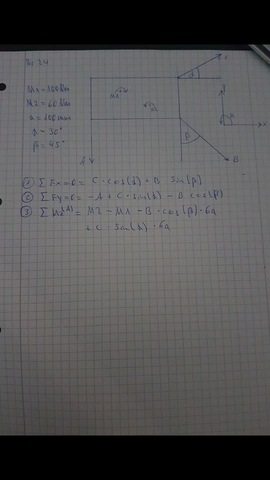 M1 = 100 Nm
M2 = 60 Nm
a = 100 mm
α = 30°
β = 45°
C
α
M1
M2
y
x
β
A
B
① ΣFx=0= C · cos(α) + B · sin(β)
② ΣFy=0= -A + C · sin(α) - B cos(β)
③ ΣM(A)= M2 - M1 - B · cos(β) · 6a
+ C · sin(α) · 6a